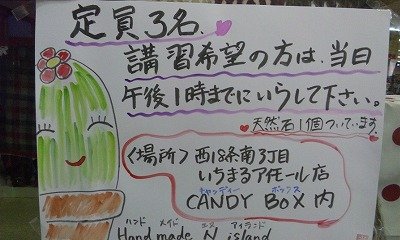 定員3名.
講習希望の方は、当日
午後1時までにいらして下さい。
天然石1個ついています。
〈場所〉西18条南3丁目
いちまるアモール店
キャンディー ボックス
CANDY BOX 内
ハンド メイド エヌ アイランド
Hand made N island